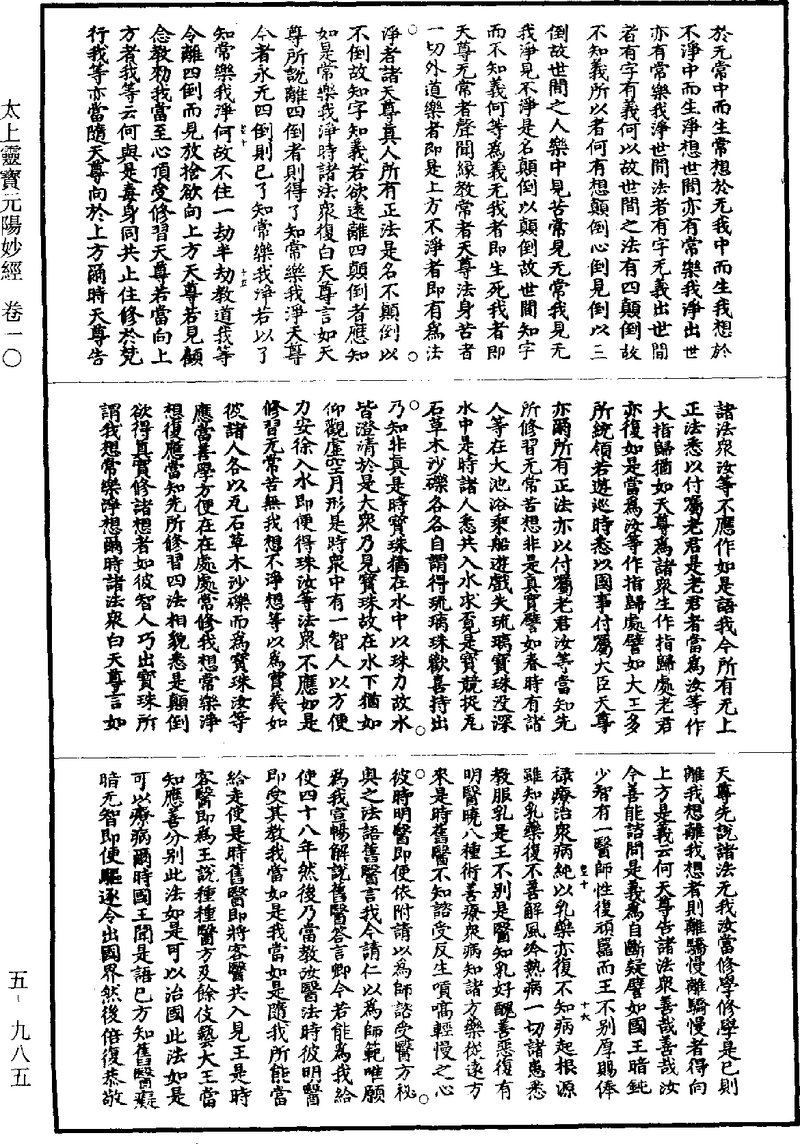 太上靈寶元陽妙經 卷一〇
五-九八五
於无常中而生常想於无我中而生我想於
不淨中而生淨想世間亦有常樂我淨出世
亦有常樂我淨世間法者有字无義出世間
者有字有義何以故世間之法有四顛倒故
不知義所以者何有想顛倒心倒見倒以三
倒故世間之人樂中見苦常見无常我見无
我淨見不淨是名顛倒以顛倒故世間知字
而不知義何等為義无我者即生死我者即
天尊无常者聲聞緣教常者天尊法身苦者
一切外道樂者即是上方不淨者即有為法
淨者諸天尊真人所有正法是名不顛倒以
不倒故知字知義若欲遠離四顛倒者應知
如是常樂我淨時諸法衆復白天尊言如天
尊所說離四倒者則得了知常樂我淨天尊
今者永无四倒則已了知常樂我淨若以了
知常樂我淨何故不住一劫半劫教道我等
令離四倒而見放捨欲向上方天尊若見顧
念教勑我當至心頂受修習天尊若當向上
方者我等云何與是毒身同共止住修於梵
行我等亦當隨天尊向於上方爾時天尊告
諸法衆汝等不應作如是語我今所有无上
正法悉以付屬老君是老君者當為汝等作
大指歸猶如天尊為諸衆生作指歸處老君
亦復如是當為汝等作指歸處譬如大王多
所統領若遊巡時悉以國事付屬大臣天尊
亦爾所有正法亦以付屬老君汝等當知先
所修習无常苦想非是真實譬如春時有諸
人等在大池浴乘船遊戲失琉璃寶珠没深
水中是時諸人悉共入水求覓是寶競捉瓦
石草木沙礫各各自謂得琉璃珠歡喜持出
乃知非真是時寶珠猶在水中以珠力故水
皆澄清於是大衆乃見寶珠故在水下猶如
仰觀虛空月形是時衆中有一智人以方便
力安徐入水即便得珠汝等法衆不應如是
修習无常苦無我想不淨想等以為實義如
彼諸人各以瓦石草木沙礫而為寶珠汝等
應當善學方便在在處處常修我想常樂淨
想復應當知先所修習四法相貌悉是顛倒
欲得真實修諸想者如彼智人巧出寶珠所
謂我想常樂淨想爾時諸法衆白天尊言如
天尊先說諸法无我汝當修學修學是已則
離我想離我想者則離驕慢離驕慢者得向
上方是義云何天尊告諸法衆善哉善哉汝
今善能諮問是義為自斷疑譬如國王暗鈍
少智有一醫師性復頑嚚而王不别厚賜俸
禄療治衆病純以乳藥亦復不知病起根源
雖知乳藥復不善解風冷熱病一切諸患悉
教服乳是王不别是醫知乳好醜善惡復有
明醫曉八種術善療衆病知諸方藥從遠方
來是時舊醫不知諮受反生嗔嗃輕慢之心
彼時明醫即便依附請以為師諮受醫方秘
奥之法語舊醫言我今請仁以為師範唯願
為我宣暢解說舊醫答言卿今若能為我給
使四十八年然後乃當教汝醫法時彼明醫
即受其教我當如是我當如是隨我所能當
給走使是時舊醫即將客醫共入見王是時
客醫即為王說種種醫方及餘伎藝大王當
知應善分别此法如是可以治國此法如是
可以療病爾時國王聞是語已方知舊醫癡
暗无智即便驅逐令出國界然後倍復恭敬